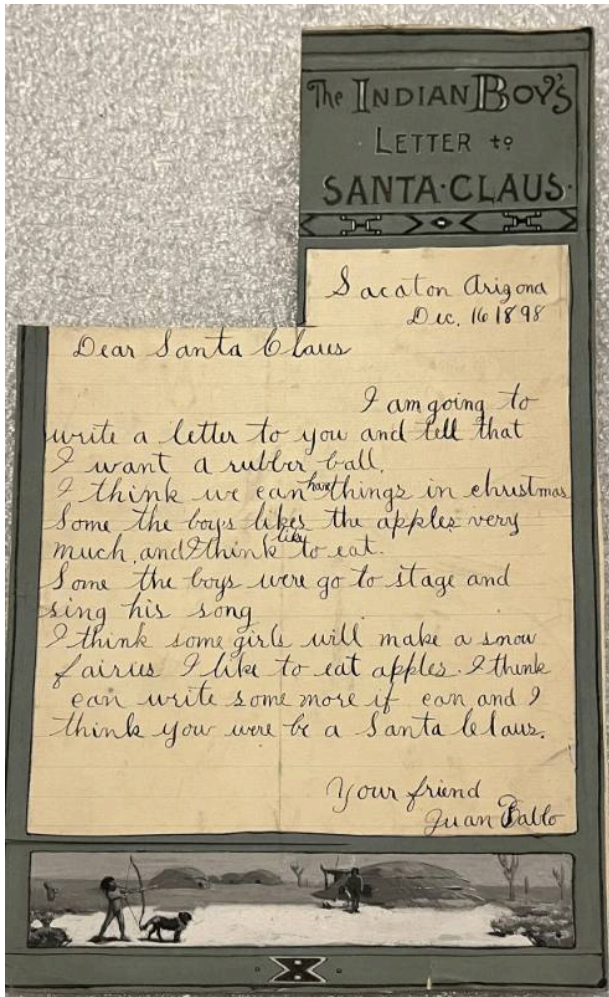 The INDIAN BOY'S
LETTER to
SANTA·CLAUS·
Sacaton Arizona
Dec. 16 1898
Dear Santa Claus
I am going to
write a letter to you and tell that
I want a rubber ball.
I think we can have things in christmas
Some the boys likes the apples very
much, and I think like to eat.
Some the boys were go to stage and
sing his song
I think some girls will make a snow
fairies I like to eat apples. I think
can write some more if can and I
think you were be a Santa Claus.
Your friend
Juan Pablo